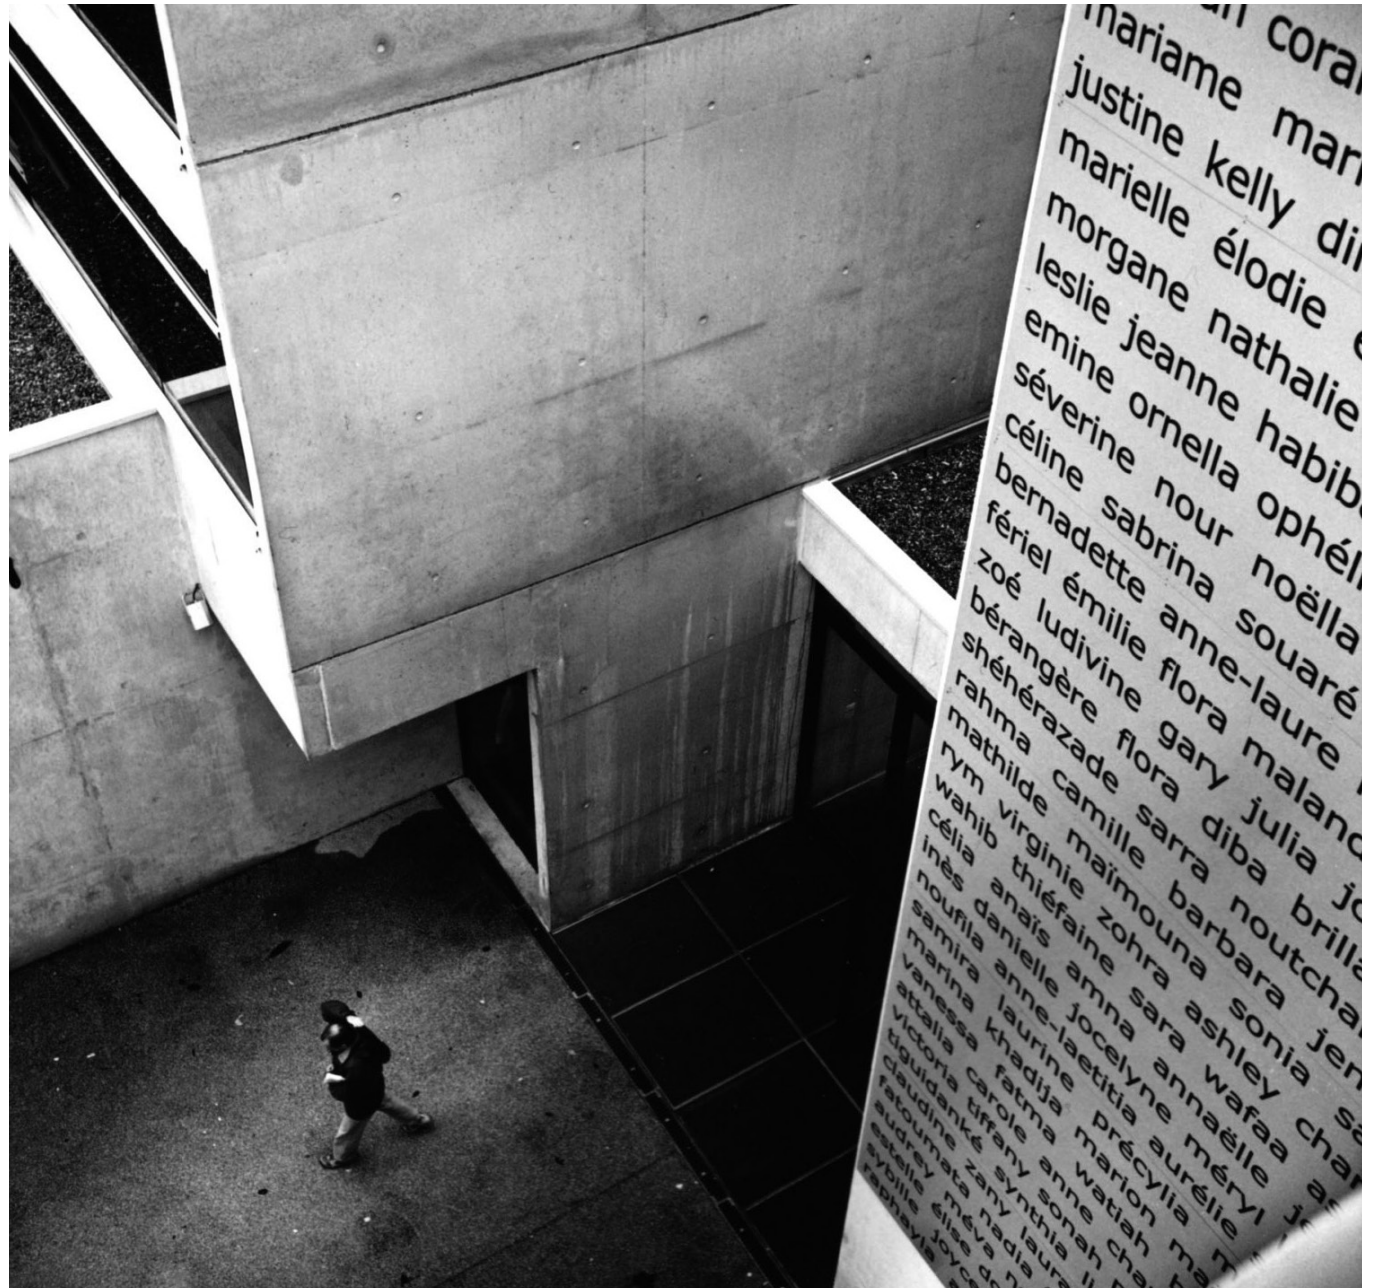 cora
mariame mar
justine kelly di
marielle élodie
morgane nathalie
leslie jeanne habib
emine ornella ophéli
séverine nour noëlla
céline sabrina souaré
bernadette anne-laure
fériel émilie flora maland
zoé ludivine gary julia jo
bérangère flora diba brilla
shéhérazade sarra noutcha
rahma camille barbara jen
mathilde maïmouna sonia sa
rym virginie zohra ashley cha
wahib thiéfaine sara wafaa as
célia anaïs amna annaëlle je
inès danielle jocelyne méryl
noufila anne-laetitia aurélie
samira laurine précylia
marina khadija marion
vanessa fatma watiah
attalia carole anne
victoria tiffany sonah
tiguidanké synthia
claudine zany laura
fatoumata nadia
audrey méva
estelle élise
sybille joy